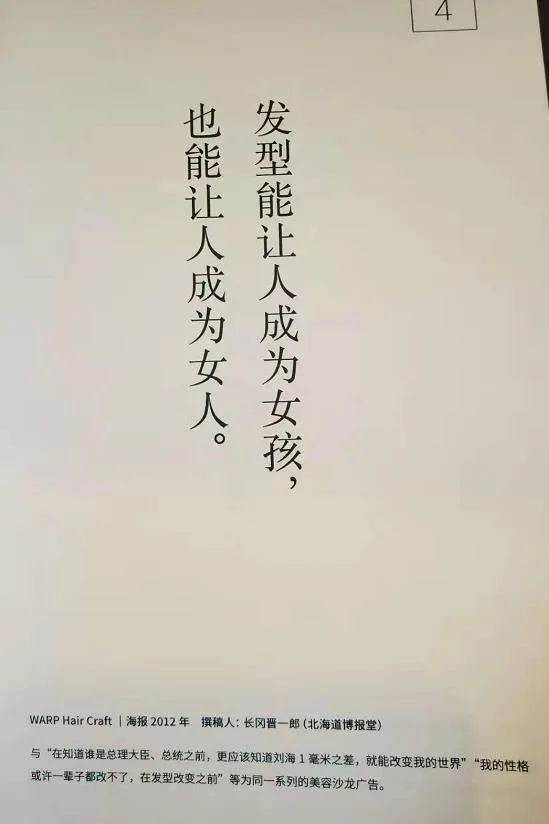 4
发型能让人成为女孩，
也能让人成为女人。
WARP Hair Craft｜海报 2012 年　撰稿人：长冈晋一郎（北海道博报堂）
与“在知道谁是总理大臣、总统之前，更应该知道刘海 1 毫米之差，就能改变我的世界”“我的性格
或许一辈子都改不了，在发型改变之前”等为同一系列的美容沙龙广告。